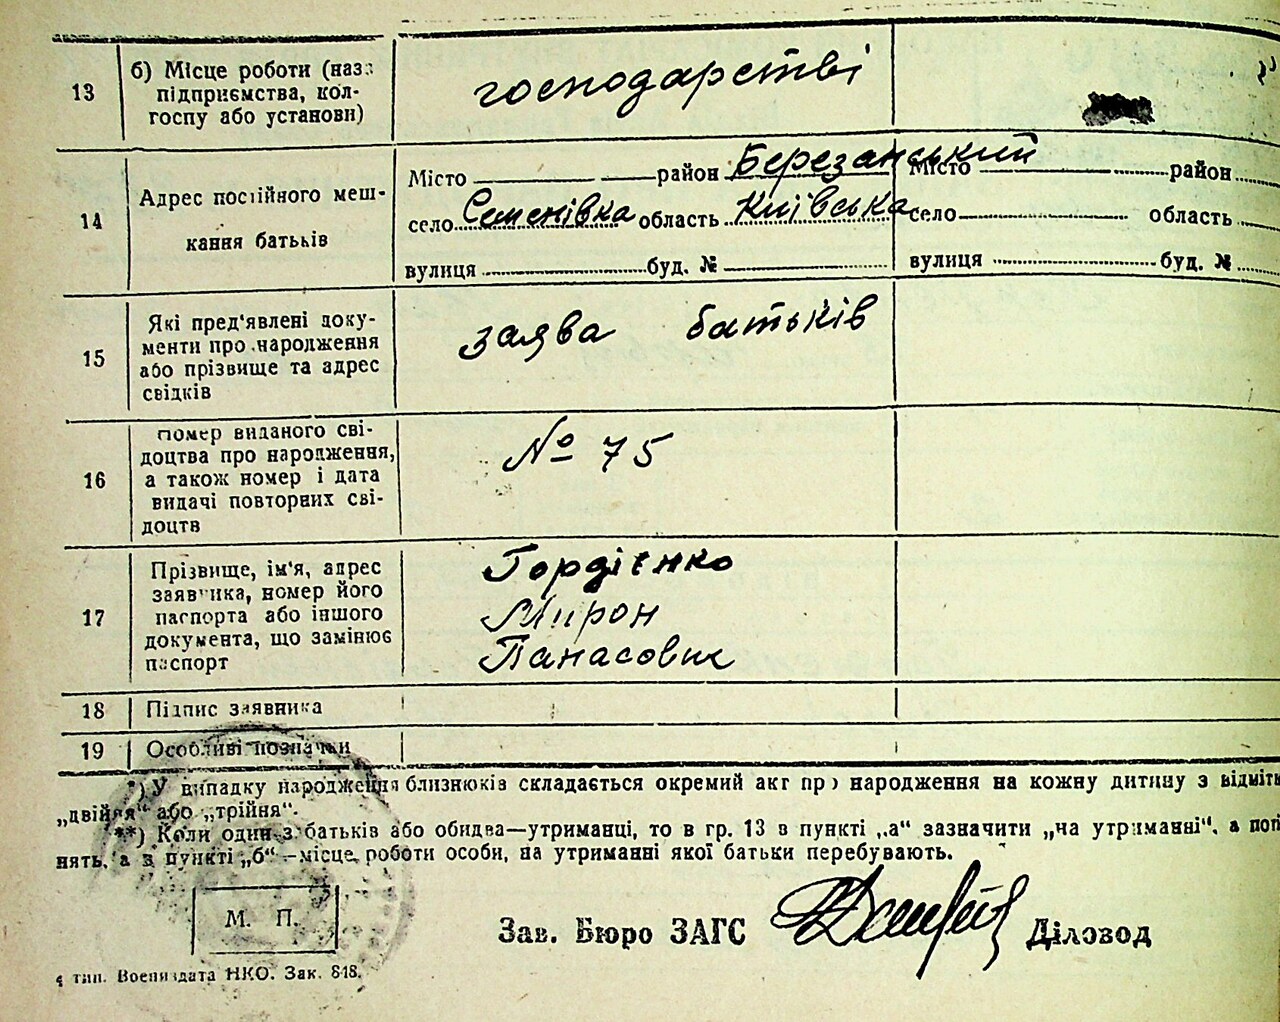 13 б) Місце роботи (назв
підприємства, кол-
госпу або установи)
господарстві
14 Адрес постійного меш-
кання батьків
Місто район Березанський
село Семенівка область Київська
вулиця буд. №
Місто район
село область
вулиця буд. №
15 Які пред'явлені доку-
менти про народження
або прізвище та адрес
свідків
заява батьків
16 Номер виданого сві-
доцтва про народження,
а також номер і дата
видачі повторних сві-
доцтв
№ 75
17 Прізвище, ім'я, адрес
заявника, номер його
паспорта або іншого
документа, що замінює
паспорт
Гордієнко
Мирон
Панасович
18 Підпис заявника
19 Особливі позначки
*) У випадку народження близнюків складається окремий акт про народження на кожну дитину з відміт
„двійня“ або „трійня“.
**) Коли один з батьків або обидва—утриманці, то в гр. 13 в пункті „а“ зазначити „на утриманні“, а пот
нять, а в пункті „б“ –місце роботи особи, на утриманні якої батьки перебувають.
М. П.
Зав. Бюро ЗАГС Діловод
тип. Воениздата НКО. Зак. 848.